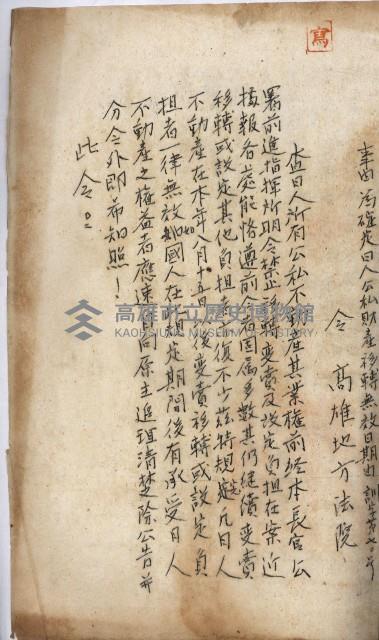 事由 為確定日人公私財產移轉無效日期由
令 高雄地方法院
查日人所有公私不動產其業權前經本長官公
署前進指揮所明令禁止移轉變賣及設定負担在案近
據報各處能恪遵前令者固屬多數其仍繼續變賣
移轉或設定其他負担者復不少茲特規定凡日人
不動產在本年八月十五日以後變賣移轉或設定負
担者一律無效如國人在規定期間後有承受日人
不動產之權益者應速自向原主追理清楚除公告並
分令外即希知照！
此令。
寫
高雄市立歷史博物館
KAOHSIUNG MUSEUM OF HISTORY